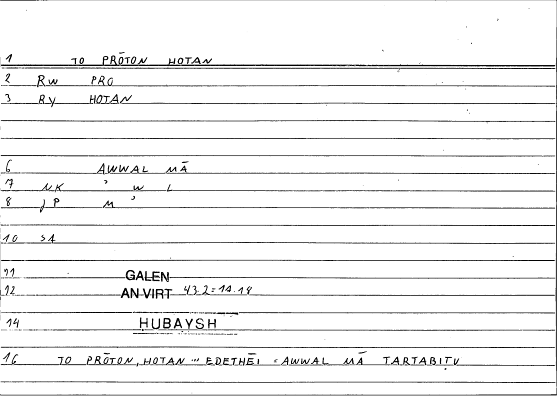 1 TO PRŌTON HOTAN
2 RW PRO
3 RY HOTAN
6 AWWAL MĀ
7 NK ʾ W L
8 JP M ʾ
10 SA
11 GALEN
12 AN VIRT 43.2=14.18
14 HUBAYSH
16 TO PRŌTON, HOTAN ... EDETHĒI = AWWAL MĀ TARTABITU